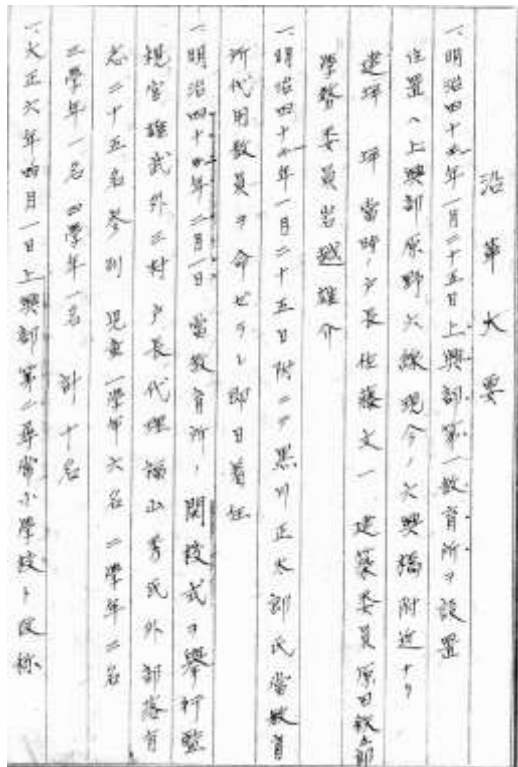 沿革大要
一、明治四十五年一月二十五日上興部第一教育所ヲ設置
位置ハ上興部原野六線現今ノ六興橋附近ナリ
建坪 坪 當時ノ戸長佐藤文一 建築委員原田
學務委員岩越雄介
一、明治四十五年一月二十五日附ニテ黒川正太郎氏當教育
所代用教員ヲ命ゼラレ即日着任
一、明治四十五年二月一日 當教育所ノ開校式ヲ舉行
外二村戸長代理福山 氏外部落有
志二十五名参列 児童一學年六名 二學年二名
三學年一名四學年一名 計十名
一、大正六年四月一日上興部第二尋常小學校ト改称